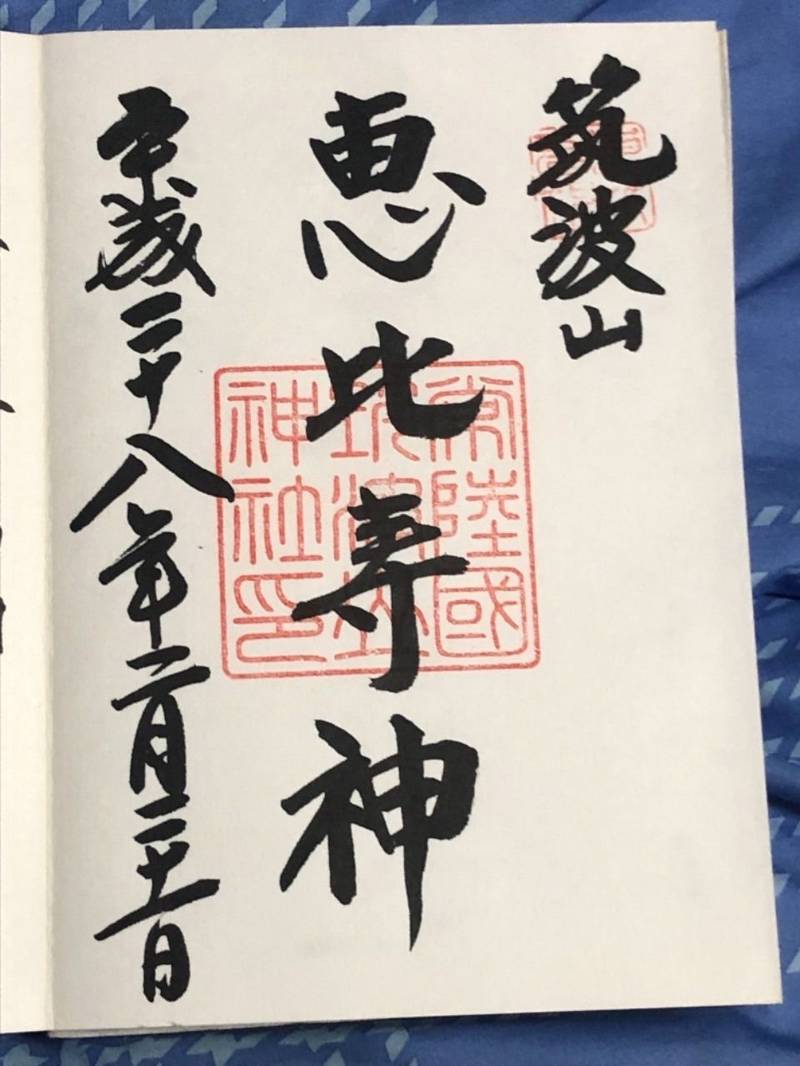 筑波山
恵比寿神
常陸國
筑波山
神社印
平成二十八年二月二十一日